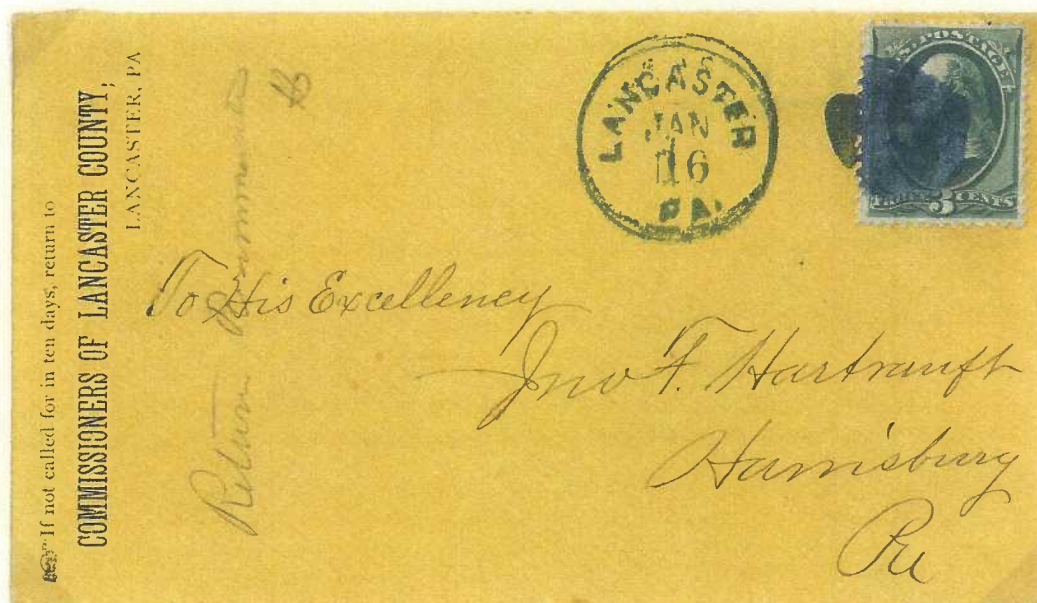 If not called for in ten days, return to
COMMISSIONERS OF LANCASTER COUNTY,
LANCASTER, PA
Return
LANCASTER
JAN
16
PA.
U.S. POSTAGE
THREE 3 CENTS
To His Excellency
Jno F. Hartranft
Harrisburg
Pa